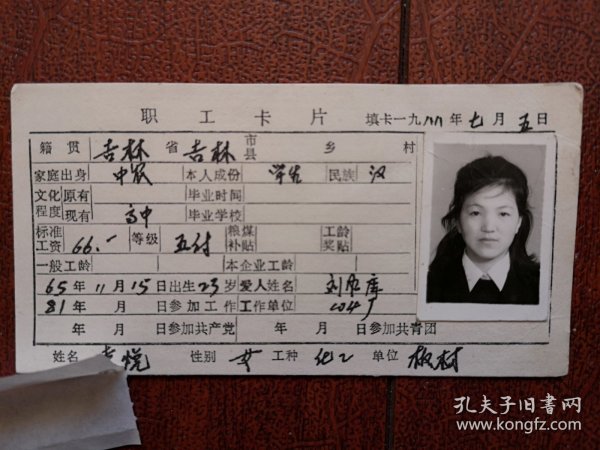 职工卡片 填卡一九88年七月五日
籍贯 吉林 省 吉林 市县 乡 村
家庭出身 中农 本人成份 学生 民族 汉
文化程度 原有 毕业时间
现有 高中 毕业学校
标准工资 66.一 等级 五付 粮煤补贴 工龄奖贴
一般工龄 本企业工龄
65年11月15日出生23岁爱人姓名 刘
81年 月 日参加工作 工作单位 104厂
年 月 日参加共产党 年 月 日参加共青团
姓名 悦 性别 女 工种 化工 单位 板材
孔夫子旧书网
www.kongfz.com